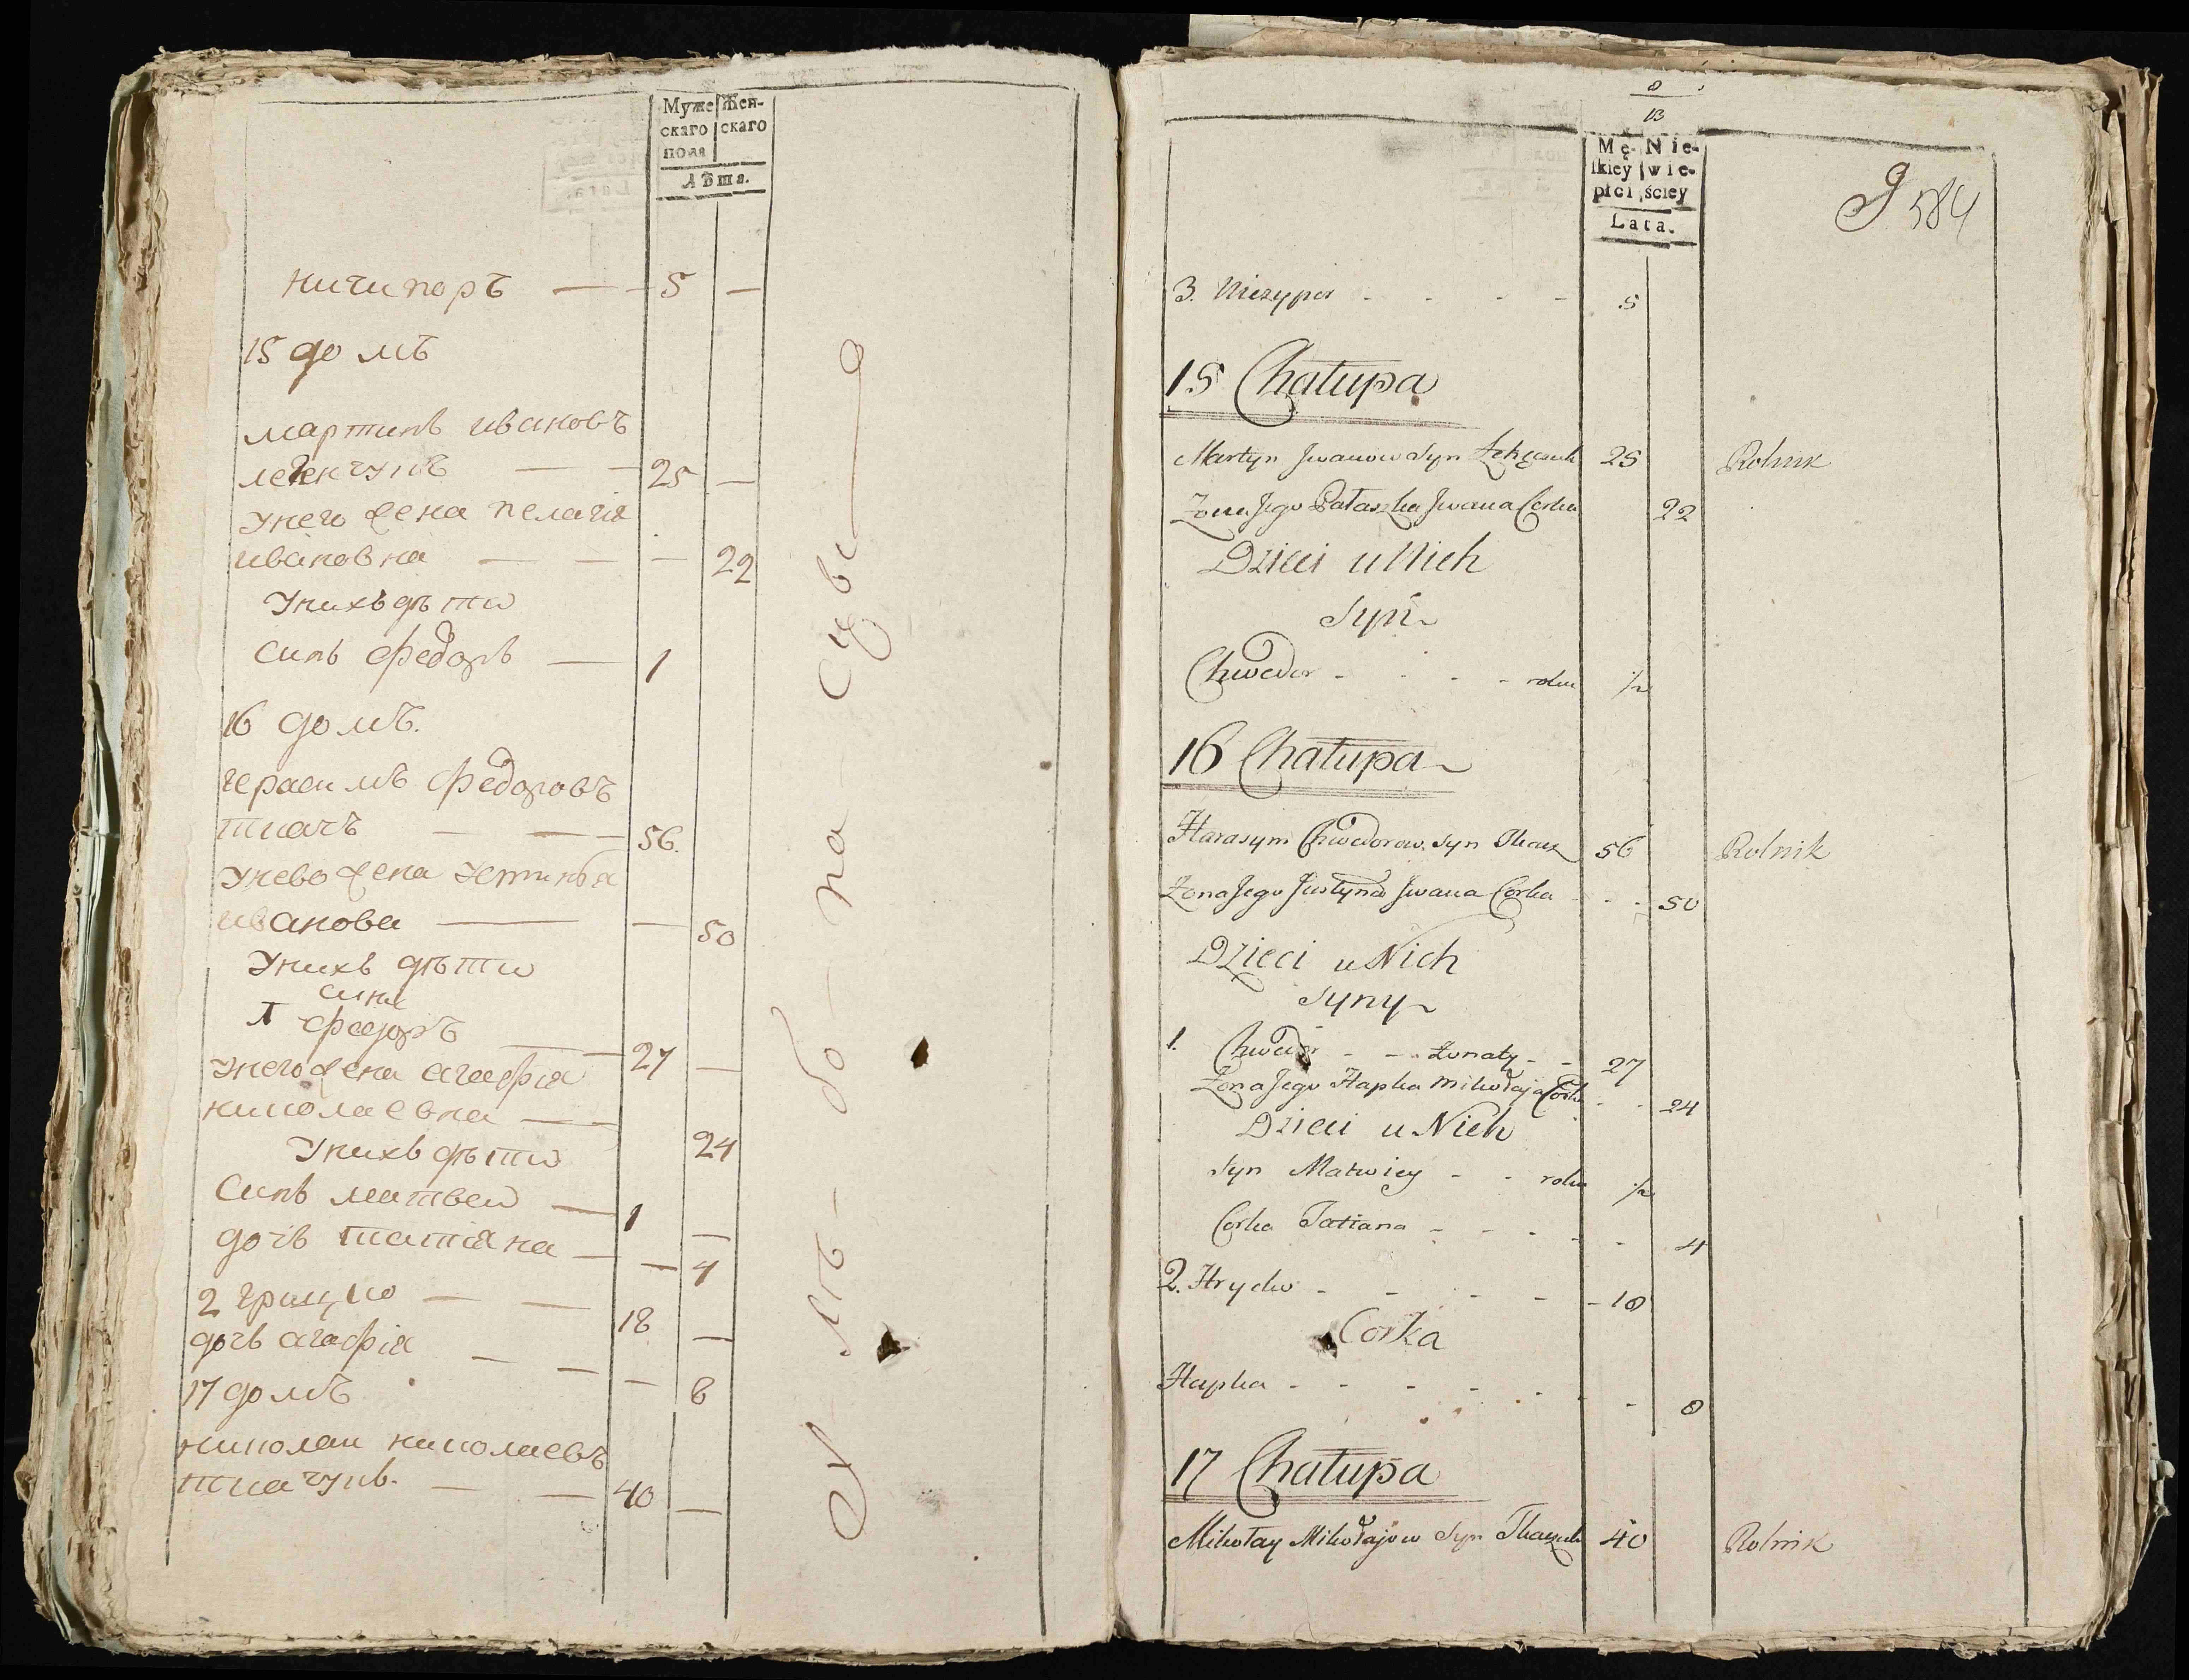 Муже Жен-
скаго скаго
пола
Лѣта.
ничипоръ — — 5 —
15 домъ
мартинъ ивановъ
— — 25 —
унего жена пелагія
ивановна — — — 22
унихъ дѣти
синъ федоръ — 1
16 домъ.
герасимъ федоровъ
ткачъ — — 56.
унево жена устинья
иванова — — 50
унихъ дѣти
сини
1 федоръ — 27 —
унего жена агафия
николаевна — — 24
унихъ дѣти
синъ матвей — 1 —
дочъ татіяна — — 4
2 грицко — — 18 —
дочъ агафія — — — 8
17 домъ
николаи николаевъ
ткачукъ. — — 40 —
8
13
Mę- Nie-
skiey wie-
płci ściey
Lata.
9 584
3. Niczypor - - - - 5
15 Chałupa
Martyn Jwanow Syn 25 Rolnik
Żona Jego Pałaszka Jwana Corka 22
Dzieci u Nich
Syn
Chwedor - - - - roku ½
16 Chałupa
Harasym Chwedorow Syn Tkacz 56 Rolnik
Żona Jego Justyna Jwana Corka - - 50
Dzieci u Nich
Syny
1. Chwedor - - Żonaty - - 27
Żona Jego Hapka Mikołaja Corka - - 24
Dzieci u Nich
Syn Matwiey - - roku ½
Corka Tatiana - - - - - 4
2. Hryćko - - - - - 18
Corka
Hapka - - - - - - - 8
17 Chałupa
Mikołay Mikołajow Syn Tkaczuk 40 Rolnik